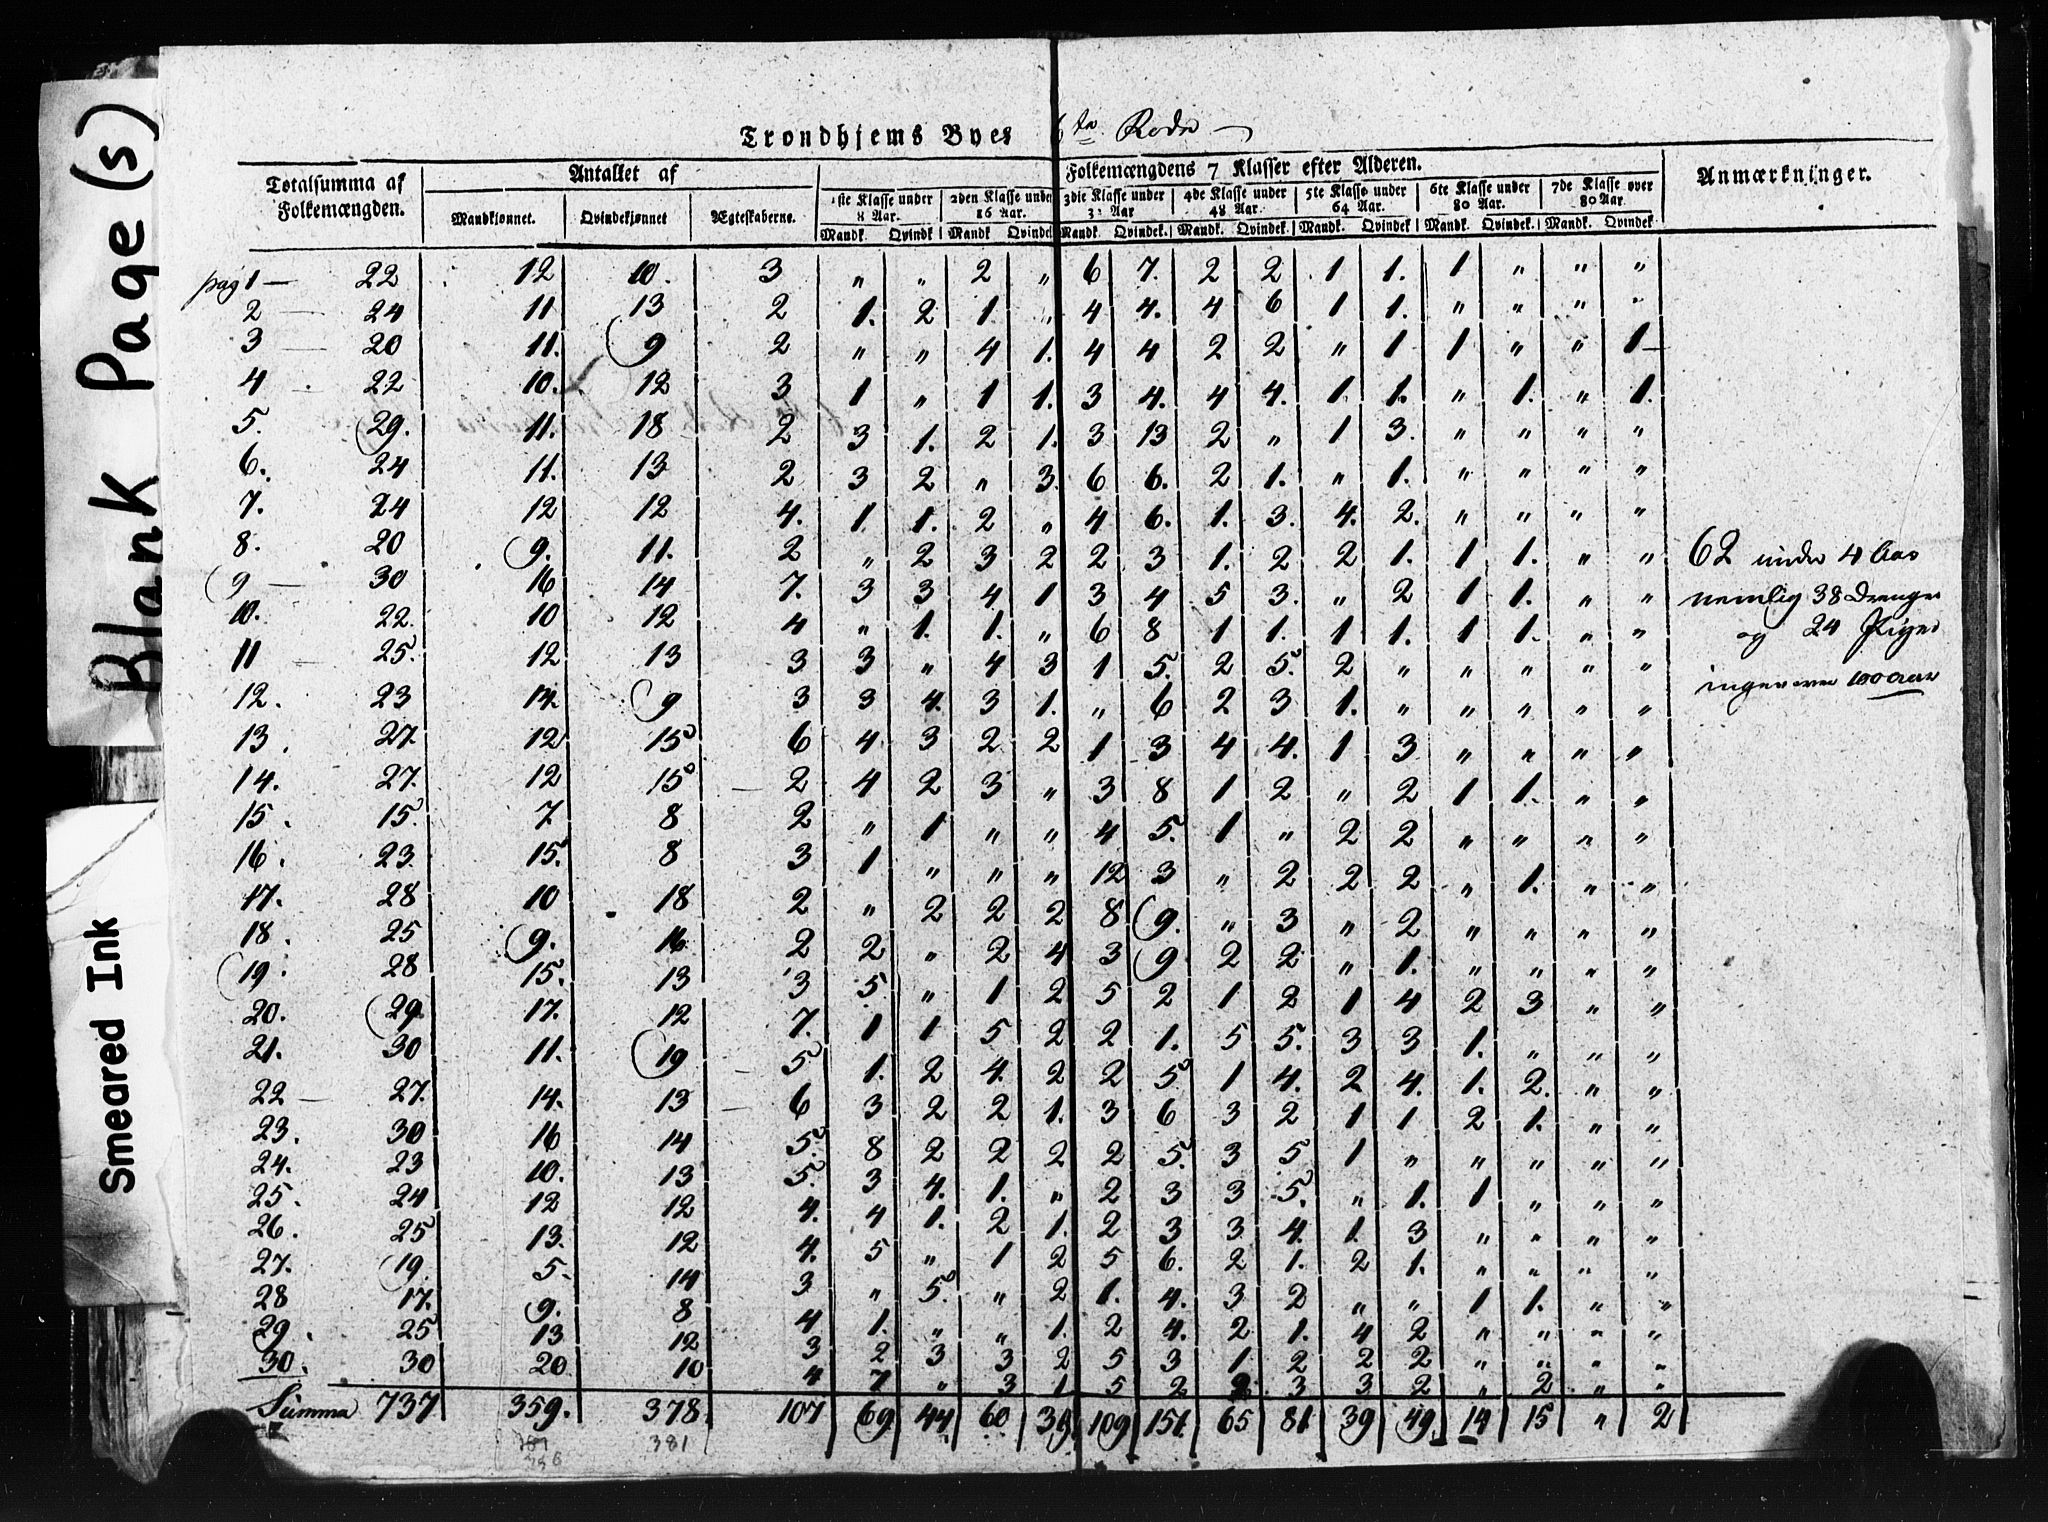 Blank Page(s)
Smeared Ink
Trondhjems Byes 6te Rode
Totalsumma af Folkemængden. | Antallet af | Folkemængdens 7 Klasser efter Alderen. | Anmærkninger.
Mandkjønnet. | Qvindekjønnet | Ægteskaberne. | 1ste Klasse under 8 Aar. | 2den Klasse under 16 Aar. | 3die Klasse under 32 Aar | 4de Klasse under 48 Aar. | 5te Klasse under 64 Aar. | 6te Klasse under 80 Aar. | 7de Klasse over 80 Aar.
Mandk. Qvindk Mandk Qvindek Mandk. Qvindek. Mandk. Qvindek. Mandk. Qvindek Mandk. Qvindek. Mandk. Qvindek
pag 1 — 22 12 10. 3 " " 2 " 6 7. 2 2 1 1. 1 " " "
2 — 24 11 13 2 1. 2 1. " 4 4. 4 6 1 1. " " " "
3 — 20 11. 9 2 " " 4 1. 4 4 2 2 " 1 1 " " 1
4 — 22 10. 12 3 1 " 1 1. 3 4. 4 4. 1. 1. " 1. " 1.
5. 29. 11. 18 2 3 1. 2 1. 3 13 2 " 1 3. " " " "
6. 24 11. 13 2 3 2 " 3. 6 6. 2 1. " 1. " " " "
7. 24 12 12 4. 1. 1. 2 " 4 6. 1. 3. 4. 2. " " " "
8. 20 9. 11. 2 " 2 3 2 2 3 1. 2 2 1. 1 1. " "
9 — 30 16 14 7. 3 3 4. 1 3 4 5 3. " 2 1 1. " "
10. 22. 10 12 4 " 1. 1. " 6 8 1 1. 1 1. 1 1. " "
11 — 25. 12 13 3 3 " 4 3 1 5. 2 5. 2 " " " " "
12. 23 14 9 3 3 4. 3 1. " 6 2 3 1. " " " " "
13. 27. 12 15 6 4 3 2 2 1 3 4 4. 1 3 " " " "
14. 27. 12 15 2 4 2 3 " 3 8 1 2 " 2 1 1. " "
15. 15. 7 8 2 " 1 " " 4 5. 1 " 2 2 " " " "
16. 23. 15. 8 3 1 " " " 12 3 " 2 2 2 " 1. " "
17. 28 10 18 2 " 2 2 2 8 9. " 3 " 2 " " " "
18. 25 9. 16 2 2 " 2 4 3 9 2 2 " 1. " " " "
19. 28 15. 13 3 5. " 1 2 5 2 1 2 1 4 2 3 " "
20. 29 17. 12 7. 1 1 5 2 2 1. 5 5. 3 3 1. " " "
21. 30 11. 19 5 1. 2 4. 2 2 5 1 4. 2 4. 1. 2. " "
22 — 27. 14. 13 6 3 2 2 1. 3 6 3 2 1 1 2 1. " "
23. 30 16 14 5. 8 2 2 2 2 5. 3 5 1 " " " " "
24. 23 10. 13 5. 3 4. 1. " 2 3 3 5. " 1. 1 " " "
25. 24 12 12 4. 4 1. 2 1. 2 3 3 4. 1. 3 " " " "
26. 25 13. 12 4. 5 " 1 2 5 6. 2 1. 2 1. " " " "
27. 19. 5. 14 3 " 5. " 2 1. 4. 3 2 " " 1 1. " "
28 17. 9. 8 4 1. " " 1. 2 4. 2 1. 4 2 " " " "
29. 25 13 12 3 2 3 3 2 5 3 1 2 2 2 " " " "
30. 30 20 10 4 7 " 3 1 5 2 2 3 3 2 " 2 " "
Summa 737 359. 378. 107 69 44 60 39 109 151 65 81 39 49. 14 15 " 2
381
62 under 4 Aar
nemlig 38 Drenge
og 24 Piger
ingen over 100 Aar